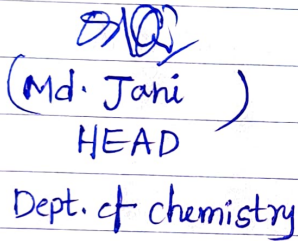 (Md. Jani )
HEAD
Dept. of chemistry